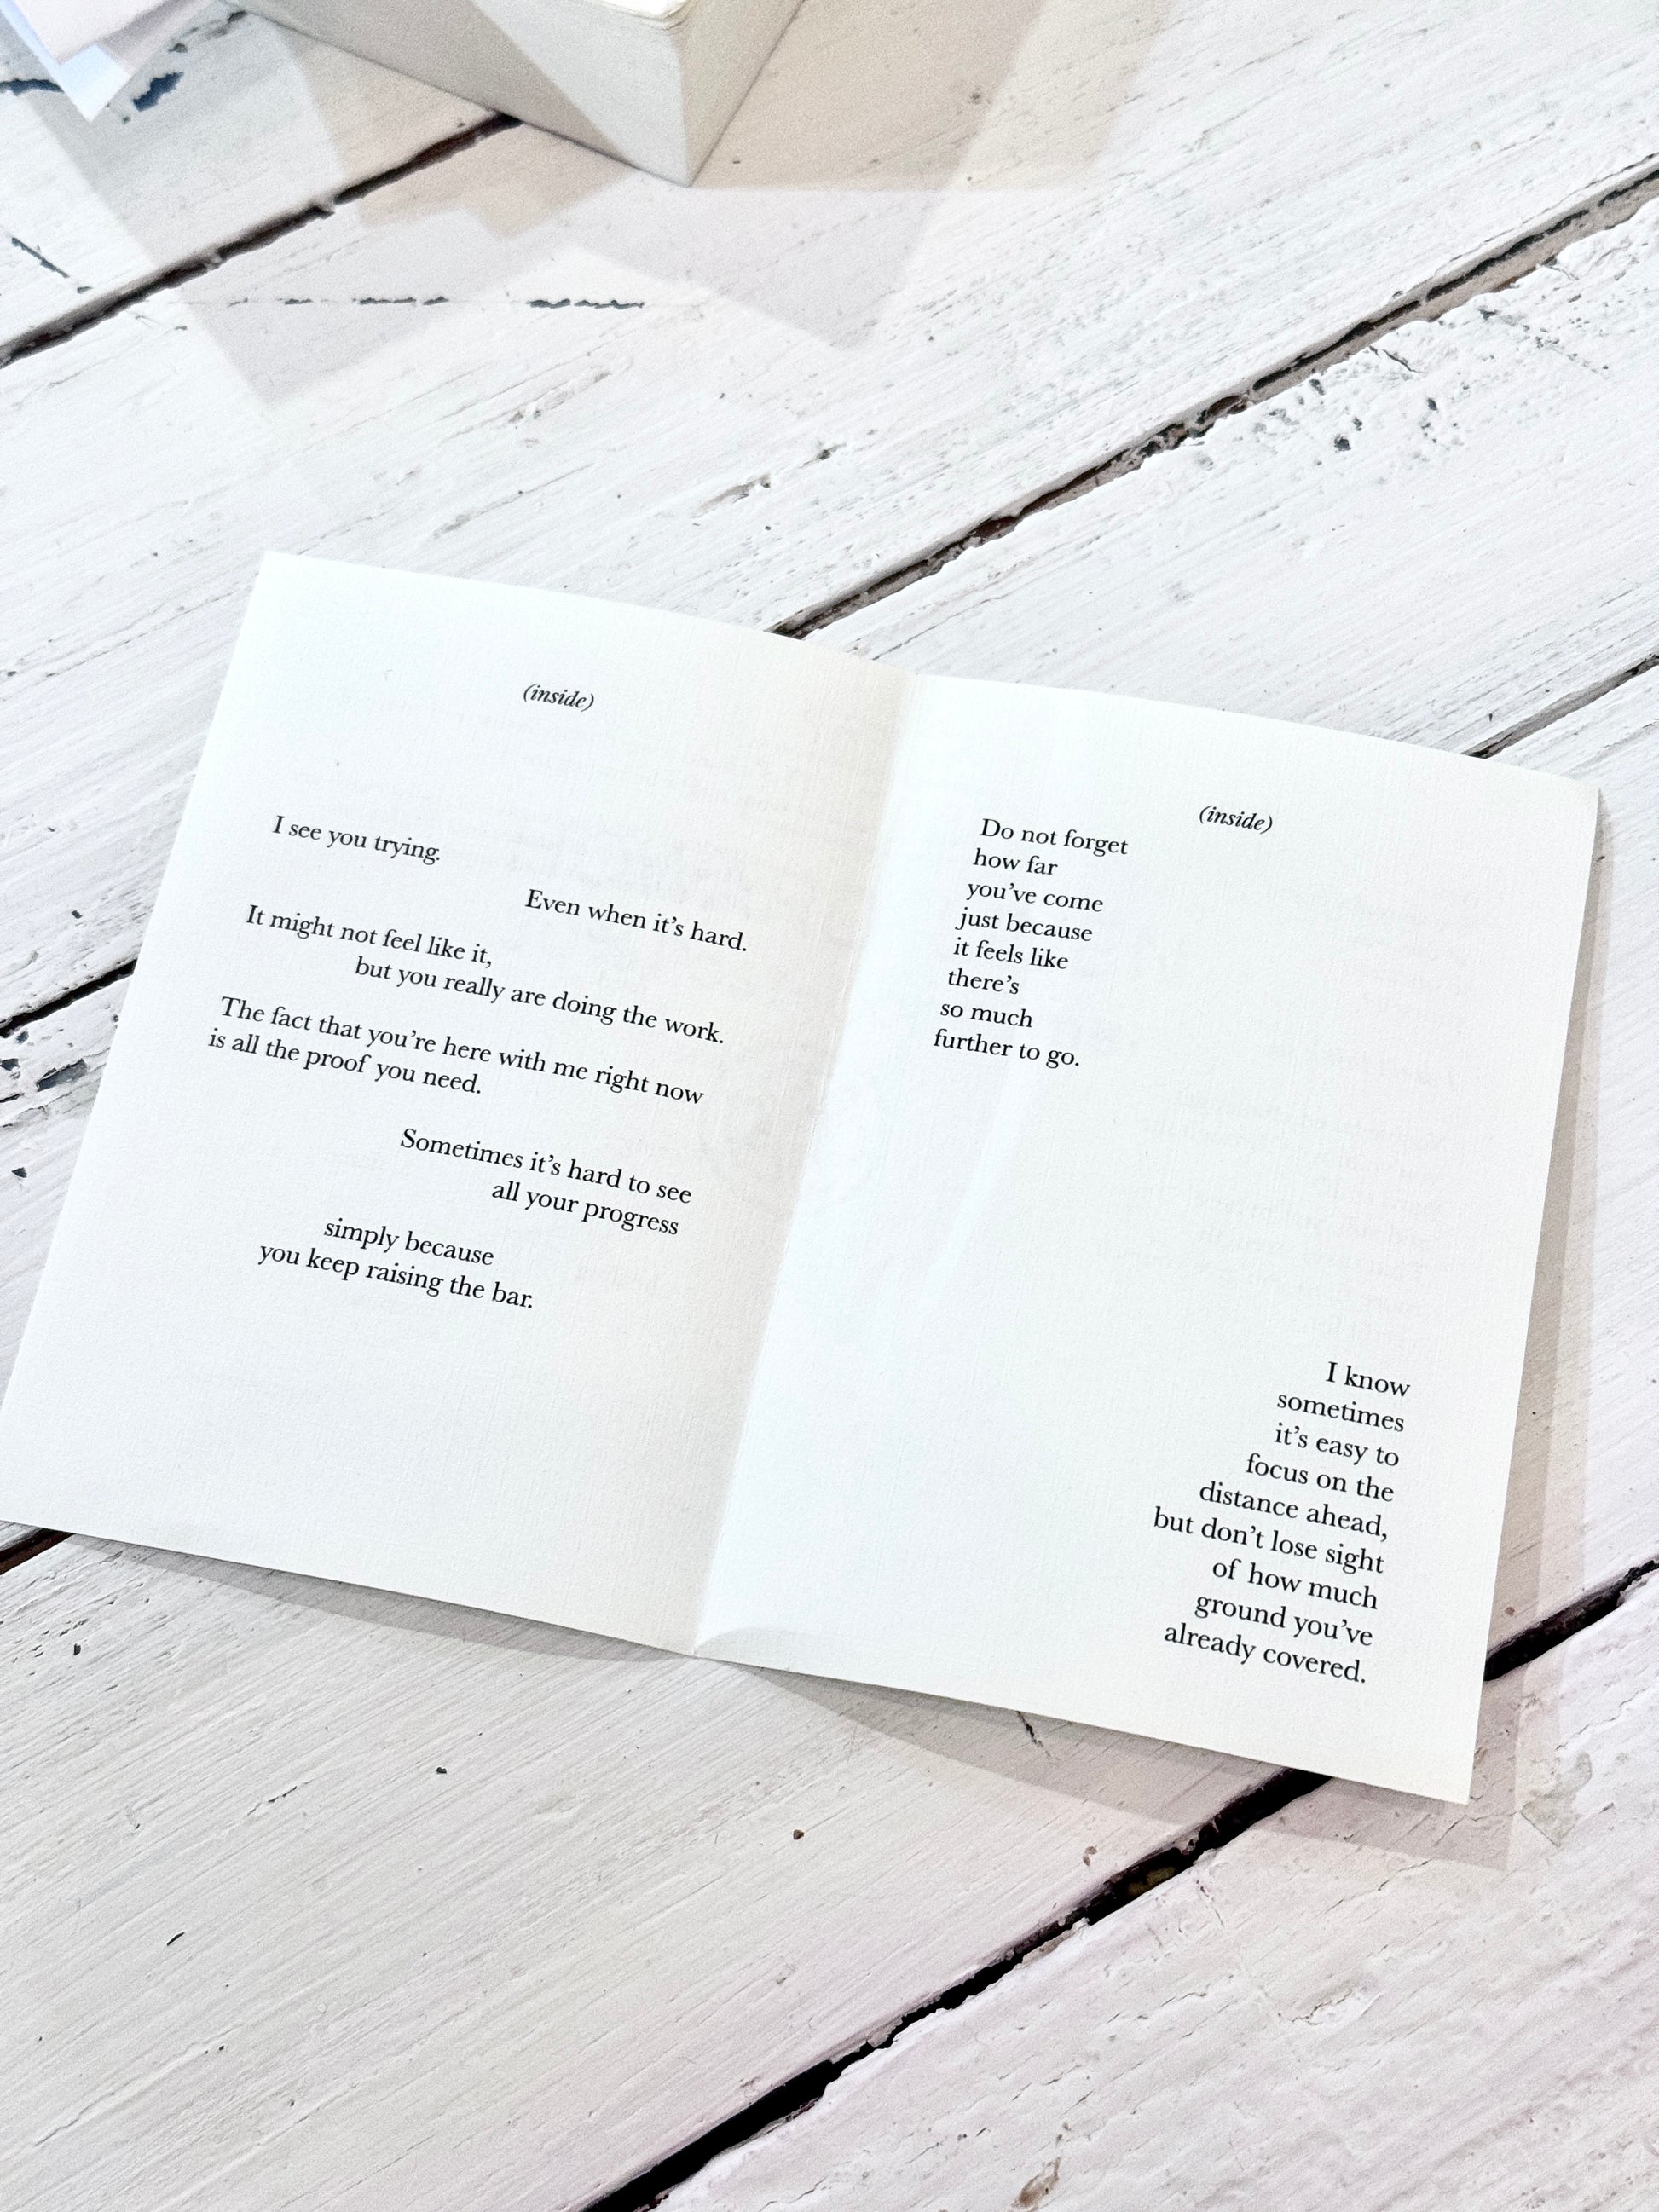 (inside)
I see you trying.
Even when it’s hard.
It might not feel like it,
but you really are doing the work.
The fact that you’re here with me right now
is all the proof you need.
Sometimes it’s hard to see
all your progress
simply because
you keep raising the bar.
(inside)
Do not forget
how far
you’ve come
just because
it feels like
there’s
so much
further to go.
I know
sometimes
it’s easy to
focus on the
distance ahead,
but don’t lose sight
of how much
ground you’ve
already covered.